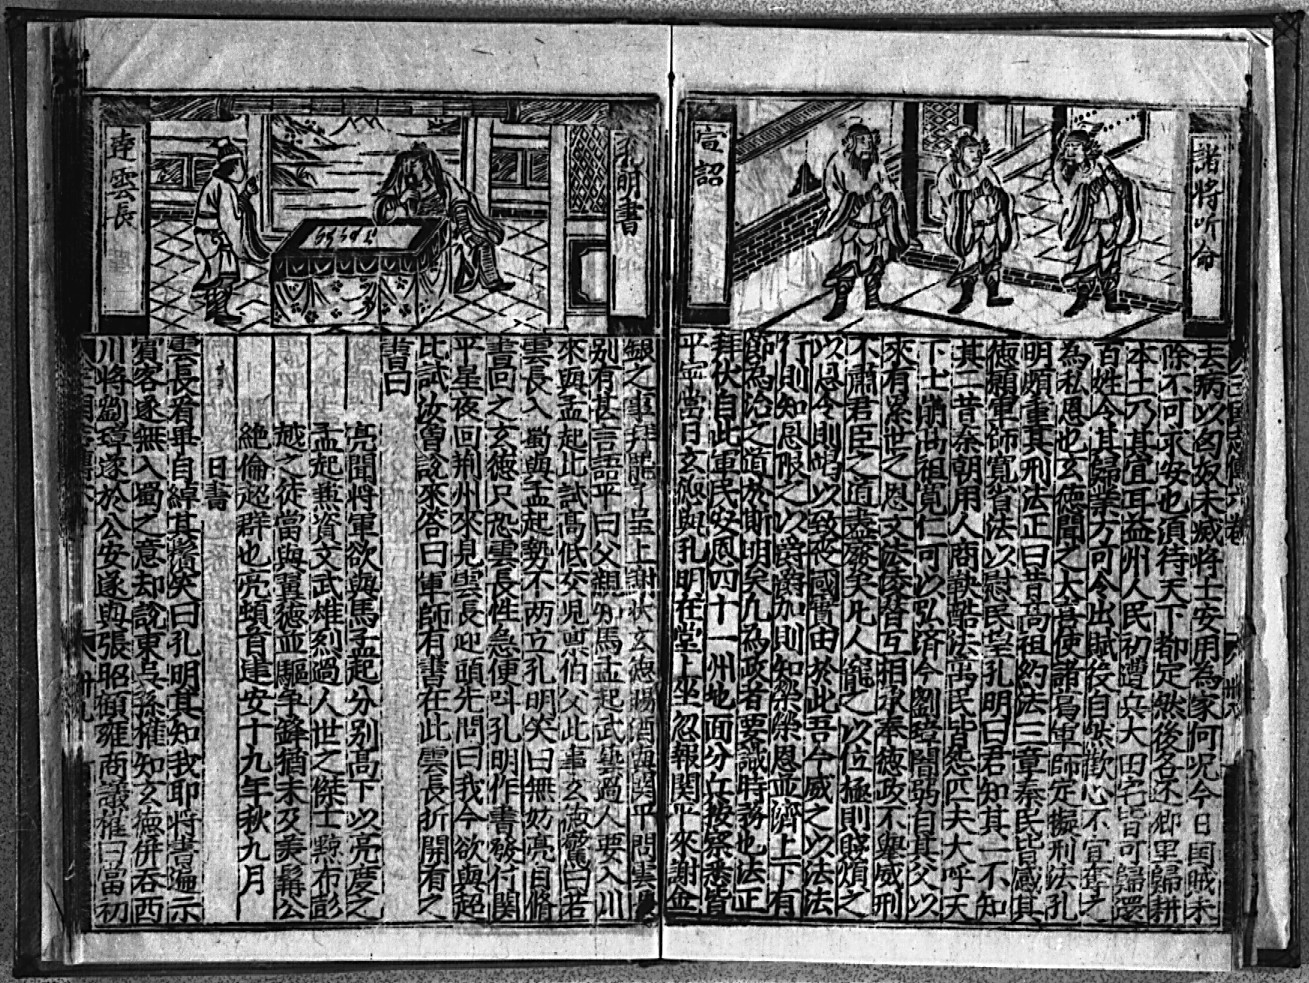 諸將听命
宣詔
去病以匈奴未滅將士安用為家何况今日国賊未
除不可求安也須待天下都定然後名还鄉里歸耕
本土乃其宜耳益州人民初遭兵大田宅皆可歸還
百姓今其歸業方可令出賦役自然歡心不宜奪之
為私恩也玄德聞之大喜使諸葛軍師定擬刑法孔
明頗重其刑法正曰昔高祖約法三章秦民皆感其
德願軍師寬省法以慰民望孔明曰君知其一不知
其二昔秦朝用人商鞅酷法萬民皆怨匹夫大呼天
下土崩故祖寬仁可以弘済今劉璋闇弱自其父以
來有累世之恩文法羈縻互相承奉德政不舉威刑
不肅君臣之道盡廢矣凡人寵之以位極則賤順之
以恩令則慢以致使國實由於此吾今威之以法法
行則知恩限之以爵爵加則知榮榮恩並濟上下有
節為治之道於斯明矣凡為政者要識時務也法正
拜伏自此軍民安恩四十一州地面分兵按察悉皆
平寧當日玄德與孔明在堂上坐忽報関平來謝金
孔明書
達雲長
銀之事拜罷了呈上謝狀玄德賜酒與関平問雲長
別有甚言語平曰父親知馬孟起武藝過人要入川
來與孟起比試高低安児禀伯父此事玄德驚曰若
雲長入蜀與孟起勢不两立孔明笑曰無妨亮自脩
書回之玄德只恐雲長性急便叫孔明作書發付関
平星夜回荆州來見雲長迎頭先問曰我今欲與孟起
比試汝曾說來答曰軍師有書在此雲長折開有之
書曰
亮聞將軍欲與馬孟起分别高下以亮度之
孟起兼資文武雄烈過人世之傑士黥布彭
越之徒當與翼德並驅争鋒猶未及美髯公
絶倫超群也亮頓首建安十九年秋九月
日書
雲長看畢自綽其髯笑曰孔明真知我耶将書遍示
賓客遂無入蜀之意却說東吳孫權知玄德併吞西
川將劉璋遂於公安遂與張昭顧雍商議權曰當初